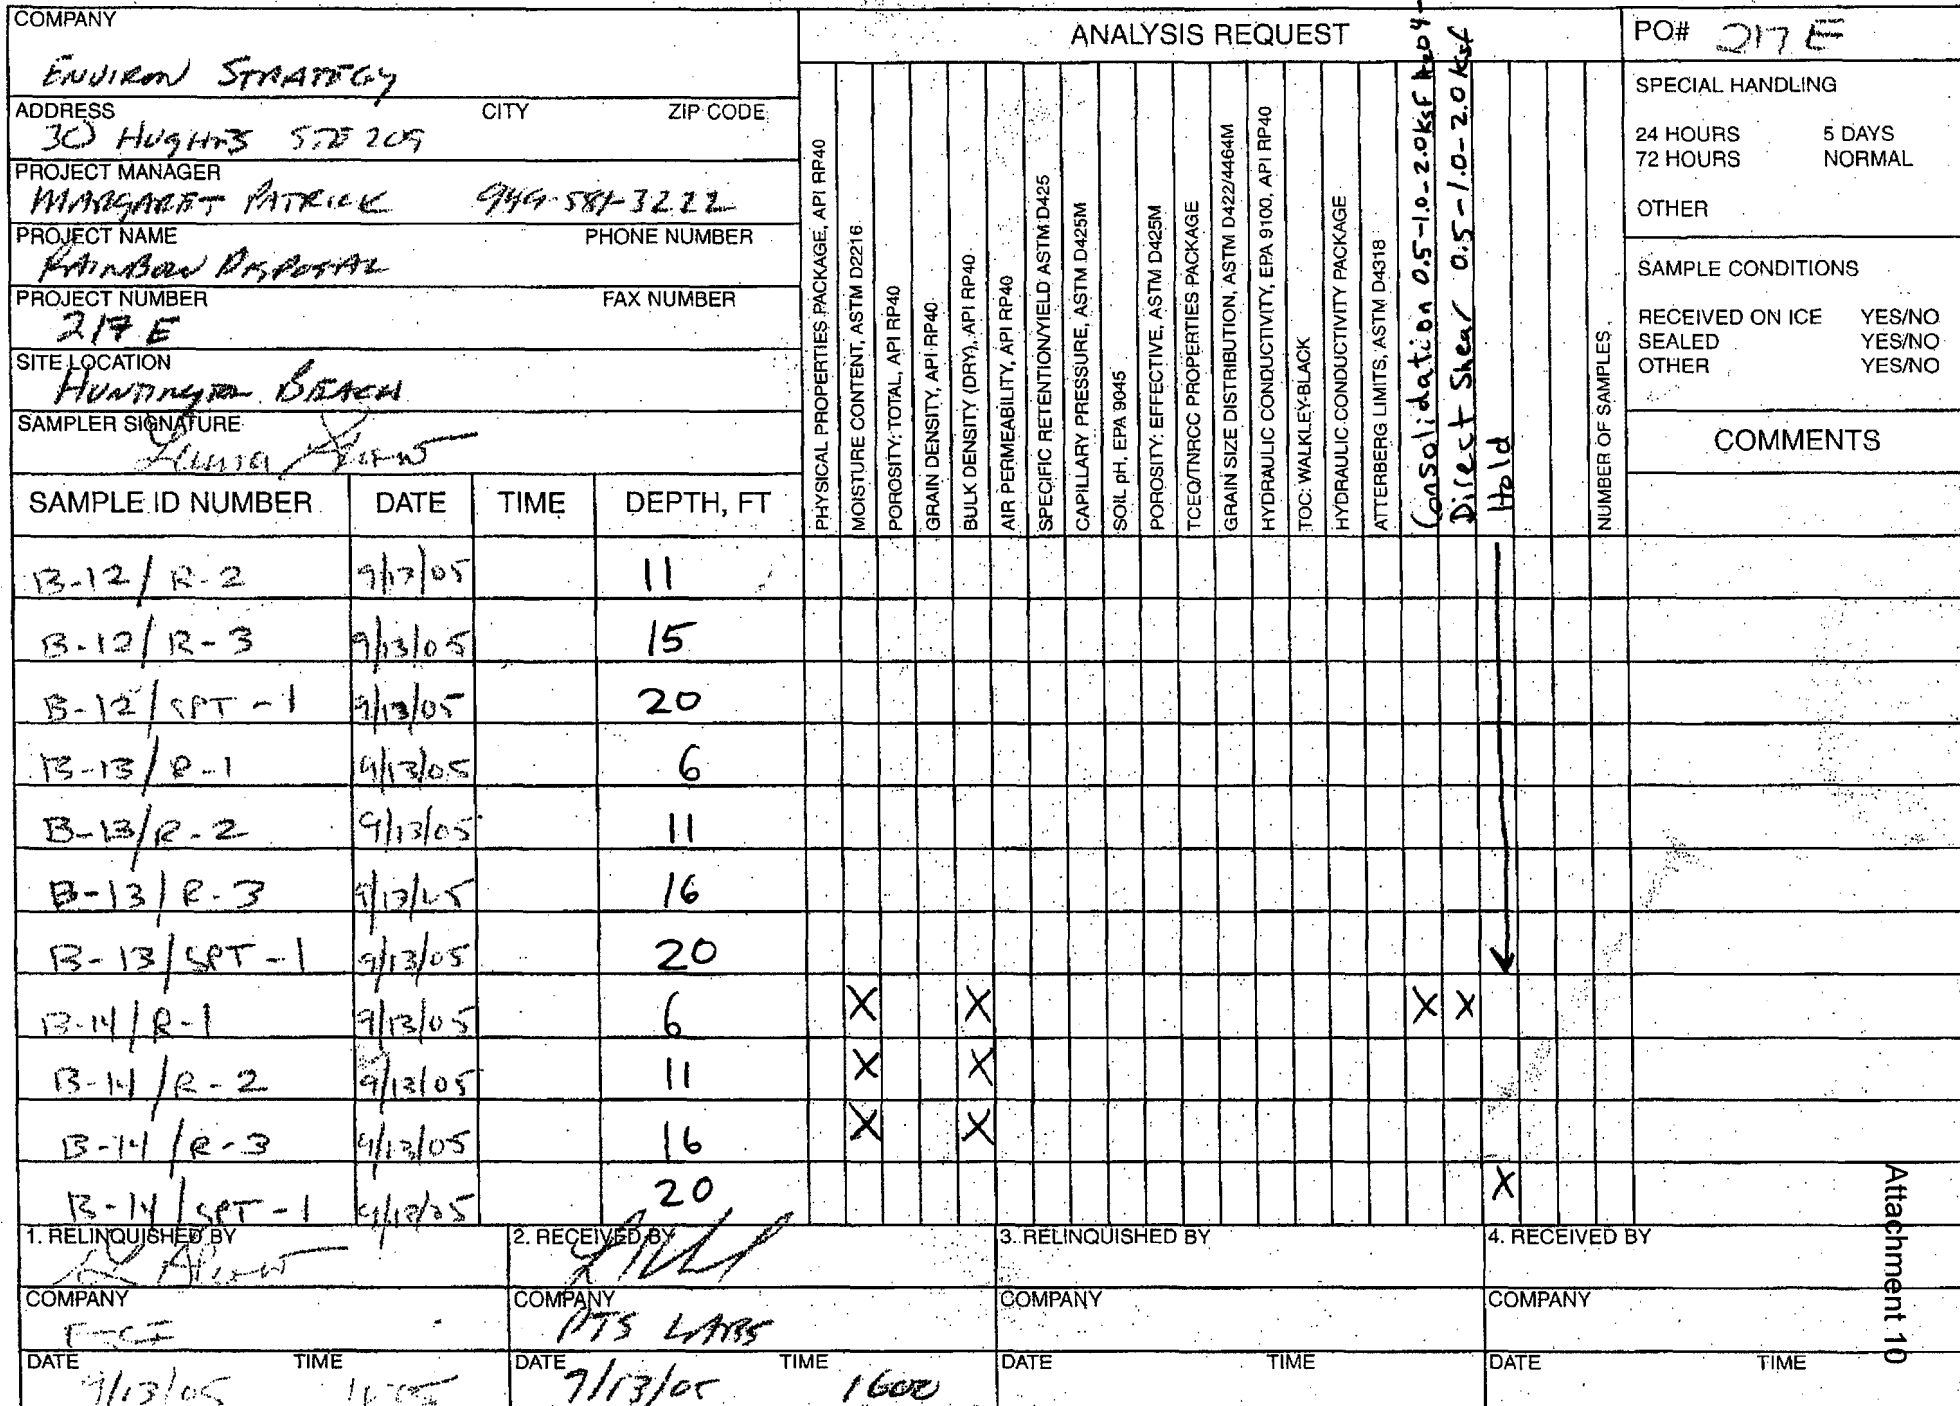 COMPANY
ENVIRON STRATEGY
ADDRESS CITY ZIP CODE
30 HUGHES STE 209
PROJECT MANAGER
MARGARET PATRICK 949-581-3222
PROJECT NAME PHONE NUMBER
RAINBOW DISPOSAL
PROJECT NUMBER FAX NUMBER
217 E
SITE LOCATION
HUNTINGTON BEACH
SAMPLER SIGNATURE
ANALYSIS REQUEST
PHYSICAL PROPERTIES PACKAGE, API RP40
MOISTURE CONTENT, ASTM D2216
POROSITY: TOTAL, API RP40
GRAIN DENSITY, API RP40
BULK DENSITY (DRY), API RP40
AIR PERMEABILITY, API RP40
SPECIFIC RETENTION/YIELD ASTM D425
CAPILLARY PRESSURE, ASTM D425M
SOIL pH, EPA 9045
POROSITY: EFFECTIVE, ASTM D425M
TCEQ/TNRCC PROPERTIES PACKAGE
GRAIN SIZE DISTRIBUTION, ASTM D422/4464M
HYDRAULIC CONDUCTIVITY, EPA 9100, API RP40
TOC: WALKLEY-BLACK
HYDRAULIC CONDUCTIVITY PACKAGE
ATTERBERG LIMITS, ASTM D4318
Consolidation 0.5-1.0-2.0 Ksf
Direct Shear 0.5-1.0-2.0 Ksf
Hold
NUMBER OF SAMPLES
PO# 217 E
SPECIAL HANDLING
24 HOURS 5 DAYS
72 HOURS NORMAL
OTHER
SAMPLE CONDITIONS
RECEIVED ON ICE YES/NO
SEALED YES/NO
OTHER YES/NO
COMMENTS
SAMPLE ID NUMBER DATE TIME DEPTH, FT
B-12/R-2 9/13/05 11
B-12/R-3 9/13/05 15
B-12/SPT-1 9/13/05 20
B-13/R-1 9/13/05 6
B-13/R-2 9/13/05 11
B-13/R-3 9/13/05 16
B-13/SPT-1 9/13/05 20
B-14/R-1 9/13/05 6 X X X X
B-14/R-2 9/13/05 11 X X
B-14/R-3 9/13/05 16 X X
B-14/SPT-1 9/13/05 20 X
1. RELINQUISHED BY 2. RECEIVED BY 3. RELINQUISHED BY 4. RECEIVED BY
COMPANY COMPANY COMPANY COMPANY
PTS LABS
DATE TIME DATE TIME DATE TIME DATE TIME
9/13/05 9/13/05 1600
Attachment 10